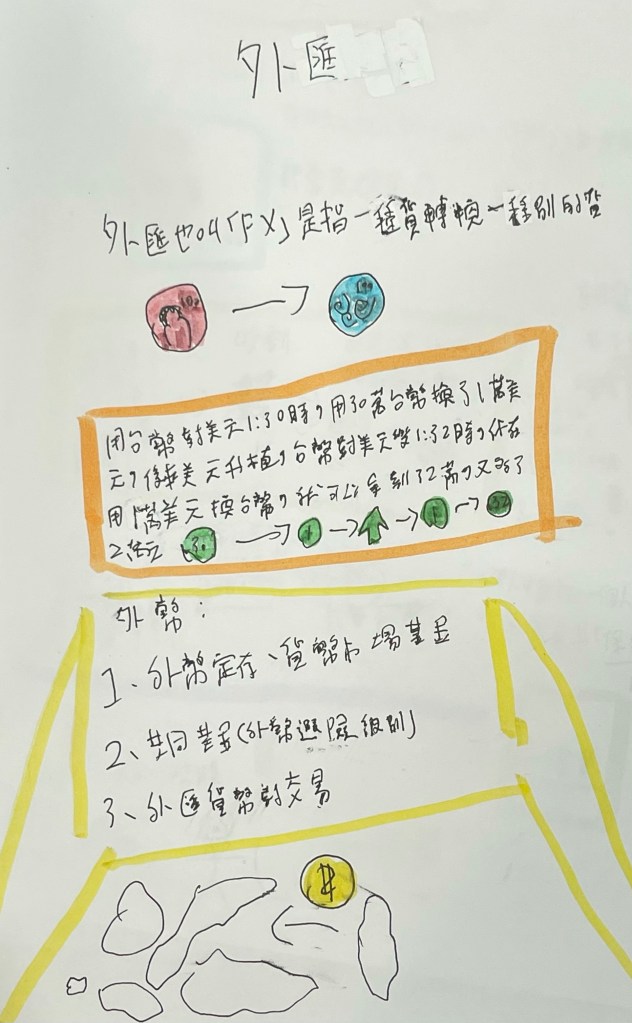 外匯
外匯也叫「FX」是指一種貨轉換一種別的貨
100
用台幣對美元1:30時,用30萬台幣換了1萬美
元,後美元升值,台幣對美元變1:32時,你在
用1萬美元換台幣,就可以拿到32萬,又多了
2萬元 30 1 1 32
外幣:
1、外幣定存、貨幣市場基金
2、共同基金(外幣避險級別)
3、外匯貨幣對交易